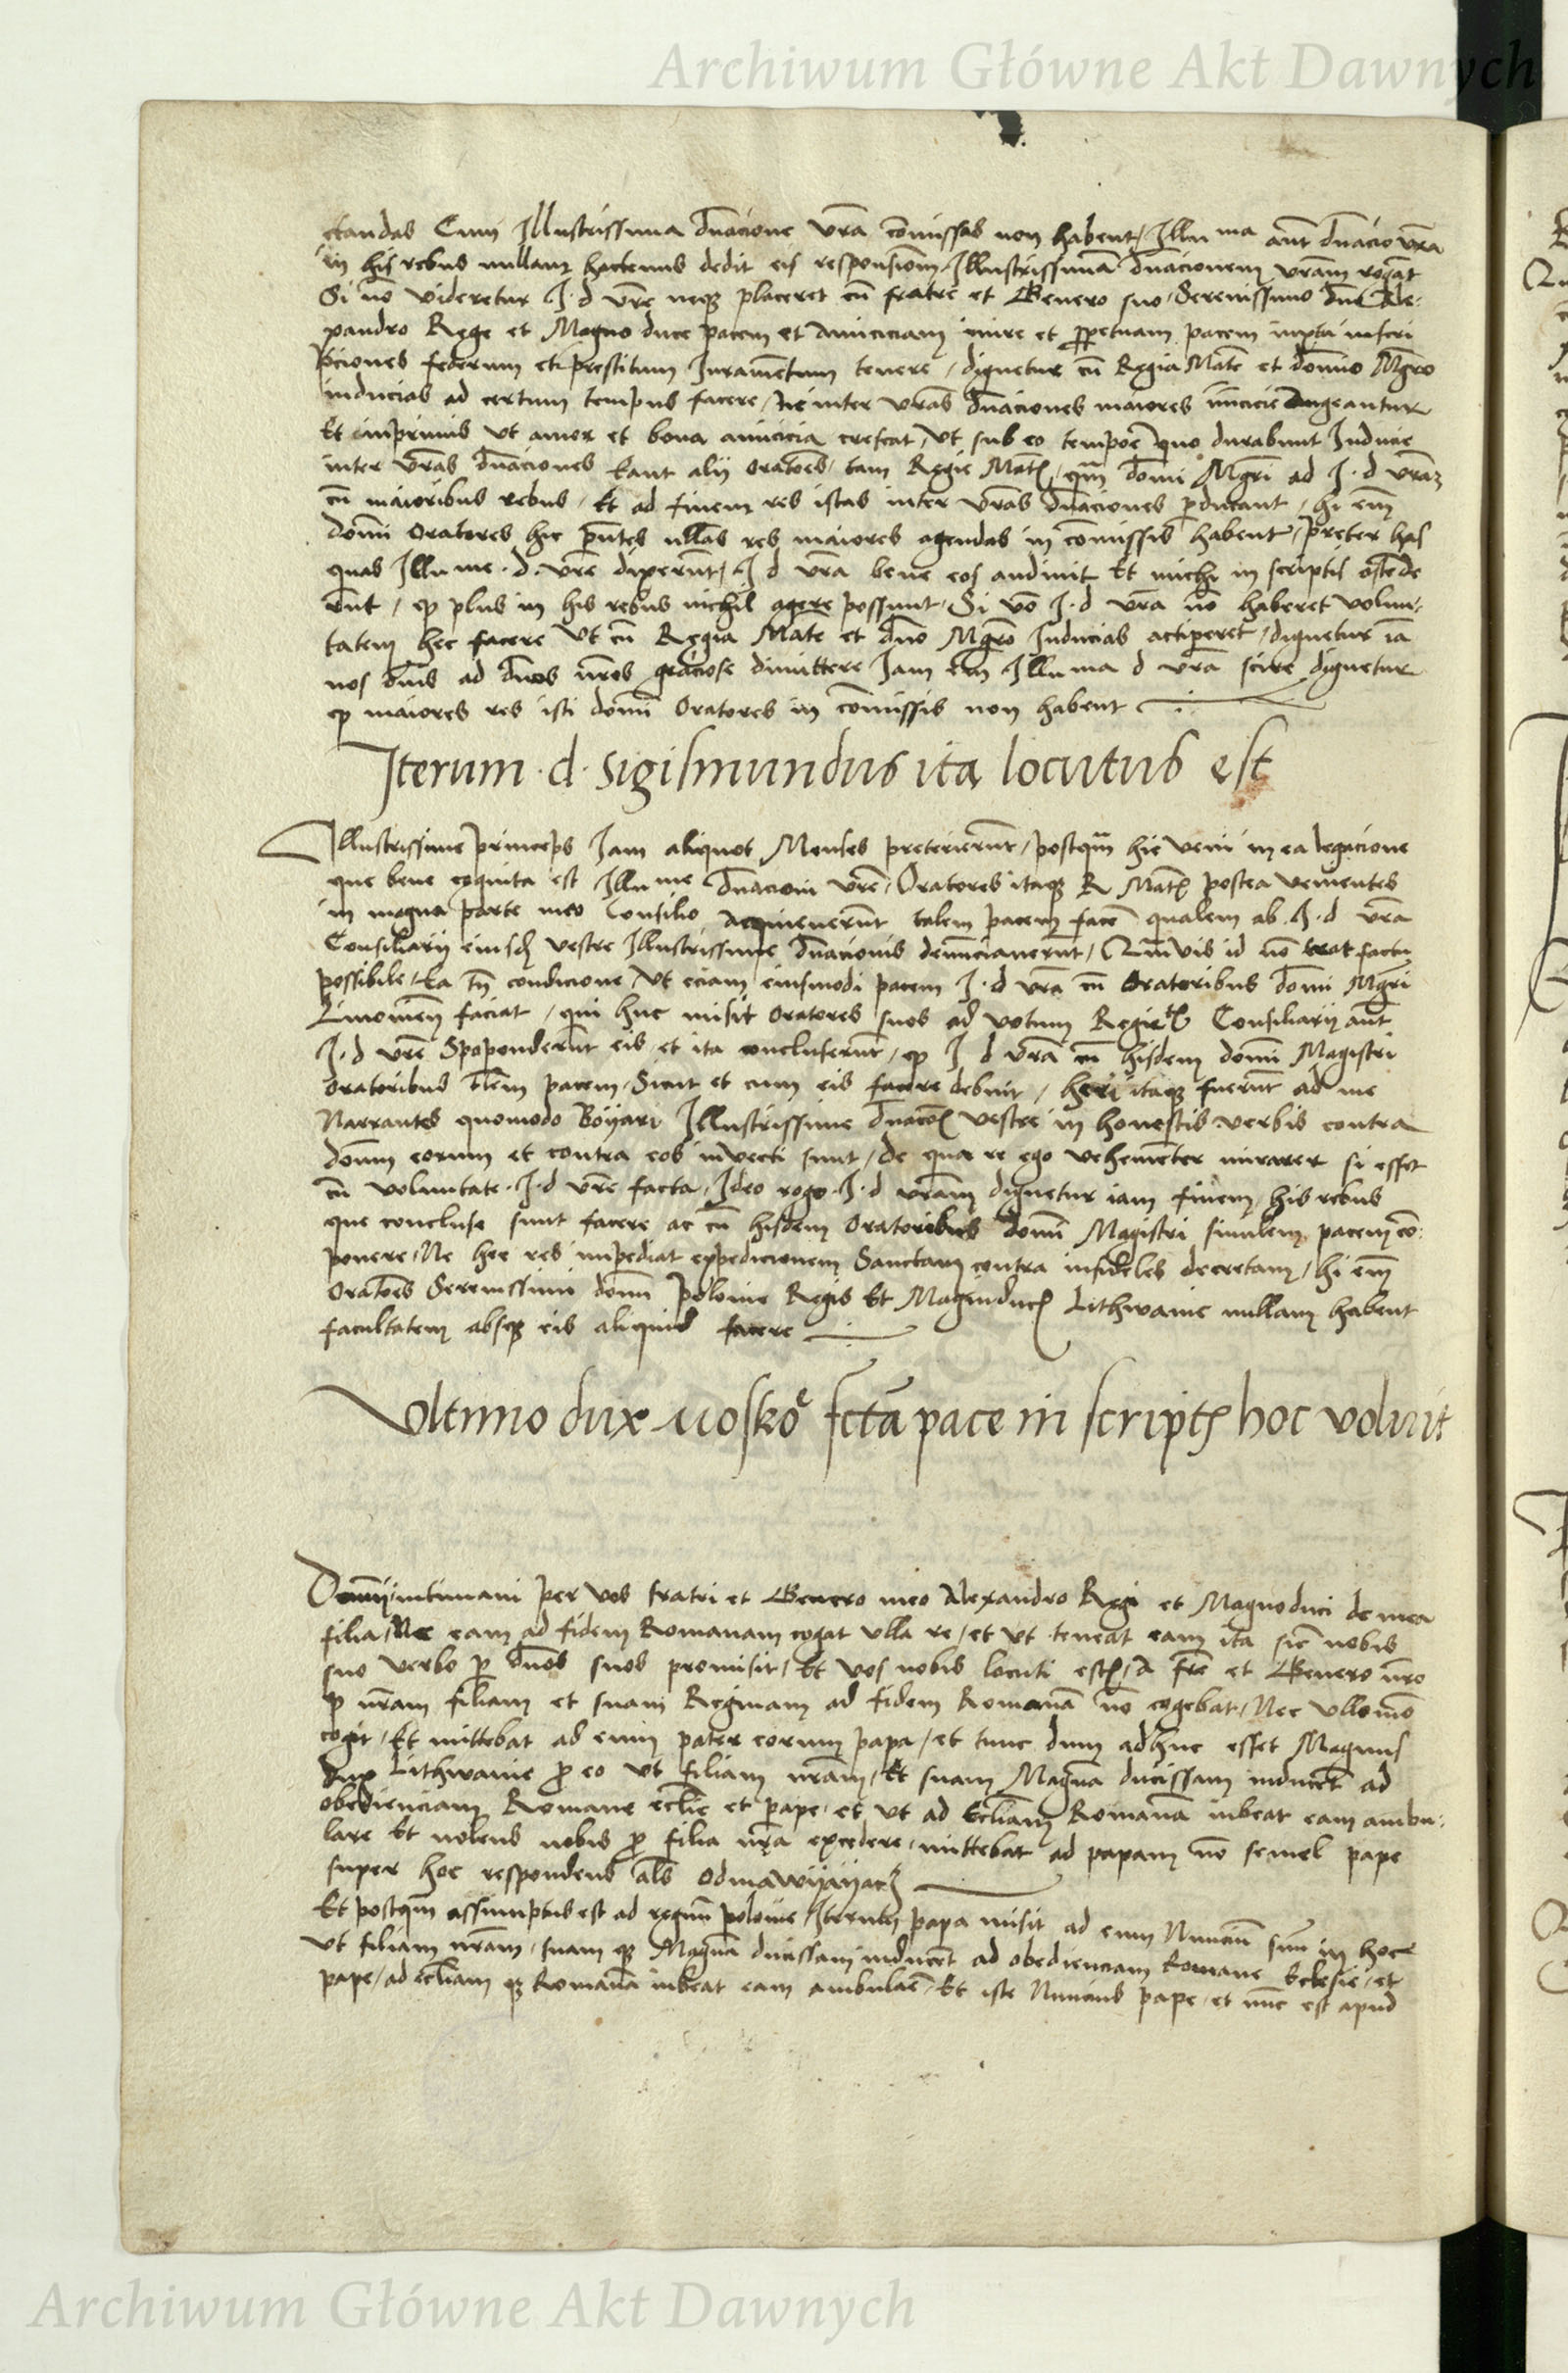 Archiwum Główne Akt Dawnych
ctandas Cum Illustrissima dnacione vra comissas non habent / Illu ma aut dnacio vra
in his rebus nullam hactenus dedit eis responsionem Illustrissimā dnacionem vram rogāt
Si nō videretur I. d vre neqz placeret cū fratre et Genero suo Serenissimo dno Ale-
xandro Rege et Magno duce pacem et amiciciam inire et ppetuam pacem iuxta inscri
pciones federum et prestitum Iuramentum tenere / dignetur cū Regia Mate et domino Mgro
inducias ad certum tempus facere / ne inter vras dnaciones maiores inimicicie augeantur
Et imprimis vt amor et bona amicicia crescat / vt sub eo tempore quo durabunt Inducie
inter vras dnaciones eant alij oratores / tam Regie Matis / qm domi Mgri ad I. d vram
cū maioribus rebus / Et ad finem res istas inter vras dnaciones pducant / hi em
domi Oratores hic pntes ullas res maiores agendas in comissis habent / preter has
quas Illu me. d. vre dixerunt / I d vra bene eos audiuit Et michi in scriptis ostede
runt / qp plus in his rebus nichil agere possunt. Si vo I. d vra nō haberet volun-
tatem hec facere vt cū Regia Mate et dno Mgro Inducias acciperet / dignetur iā
nos oms ad dnos nros graciose dimittere Iam em Illu ma d vra scire dignetur
qp maiores res isti domi Oratores in comissis non habent
Iterum. d. Sigismundus ita locutus est
Illustrissime princeps Iam aliquot Menses preterierunt / postqm hic veni in ea legacione
que bene cognita est Illu me dnacioni vre / Oratores itaqz R Matis postea venientes
in magna parte meo Consilio acquieuerunt talem pacem face qualem ab I. d vra
Consiliarij eiusd vestre Illustrissime dnacionis denunciauerunt / Qmvis id nō erat factu
possibile / Ea tn condicione / vt eciam eiusmodi pacem I. d vra cū Oratoribus domi Mgri
Liuonien faciat / qui huc misit oratores suos ad votum Regie Consiliarij aut
I. d vre Spoponderunt eis et ita concluserunt / qp I d vra cū hisdem domi Magistri
Oratoribus talem pacem Sicut et cum eis facere debuit / heri itaqz fuerunt ad me
Narrantes quomodo Boyari Illustrissime dnacois vestre in honestis verbis contra
domm eorum et contra eos inuecti sunt / de qua re ego vehementer mirarer si esset
cū voluntate. I. d vre facta. Ideo rogo. I. d vram dignetur iam finem his rebus
que concluse sunt facere ac cū hisdem Oratoribus domi Magistri similem pacem co-
ponere / Ne hec res impediat expedicionem Sanctam contra infideles decretam / hi em
Oratores Serenissimi domi Polonie Regis Et Magniducis Lithwanie nullam habent
facultatem absqz eis aliquid facere
Vltimo dux Moskoe fcta pace in scriptis hoc voluit
Domi intimaui per vos fratri et Genero meo Alexandro Regi et Magnoduci de mea
filia / Ne eam ad fidem Romanam cogat vlla re / et vt teneat eam ita sic nobis
suo verbo p dnos suos promisit / Et vos nobis locuti estis / A fre et Genero nro
qp nram filiam et suam Reginam ad fidem Romanā nō cogebat / Nec vllo mō
cogit / Et mittebat ad eum pater eorum papa / et tunc dum adhuc esset Magnus
dux Lithwanie p eo vt filiam nram / Et suam Magnā ducissam inducert ad
obedienciam Romane ecclie et pape / et vt ad Eccliam Romanā iubeat eam ambu-
lare Et nolens nobis p filia nra excedere / mittebat ad papam nō semel pape
super hoc respondens als odmawyayacz
Et postqm assumptus est ad regnū polonie / Iterum papa misit ad eum Nunciū suū in hoc
vt filiam nram / suam qz Magnā ducissam inducert ad obedienciam Romane Eclesie / et
pape / ad eccliam qz Romanā iubeat eam ambulare / Et iste Nuncius pape / et nunc est apud
Archiwum Główne Akt Dawnych